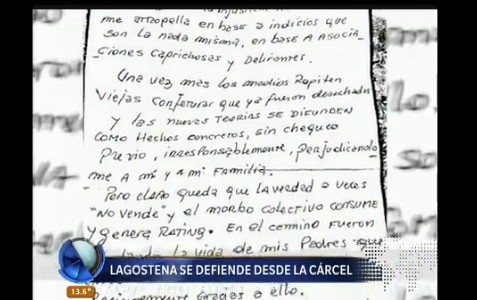 me atropella en base a indicios que
son la nada misma, en base A Asocia-
ciones Caprichosas y Delirantes.
Una vez más los medios Repiten
Viejas conjeturas que ya fueron desechadas
y las nuevas Teorías SE DIFUNDEN
COMO Hechos concretos, sin chequeo
Previo, irresponsablemente, perjudicando
me A mí y A mi Familia.
Pero claro queda que La verdad a veces
"NO Vende" y el morbo colectivo CONSUME
y genera RATING. En el camino FUERON
la vida de mis Padres que
LAGOSTENA SE DEFIENDE DESDE LA CÁRCEL
13.6°
gracias a ello.